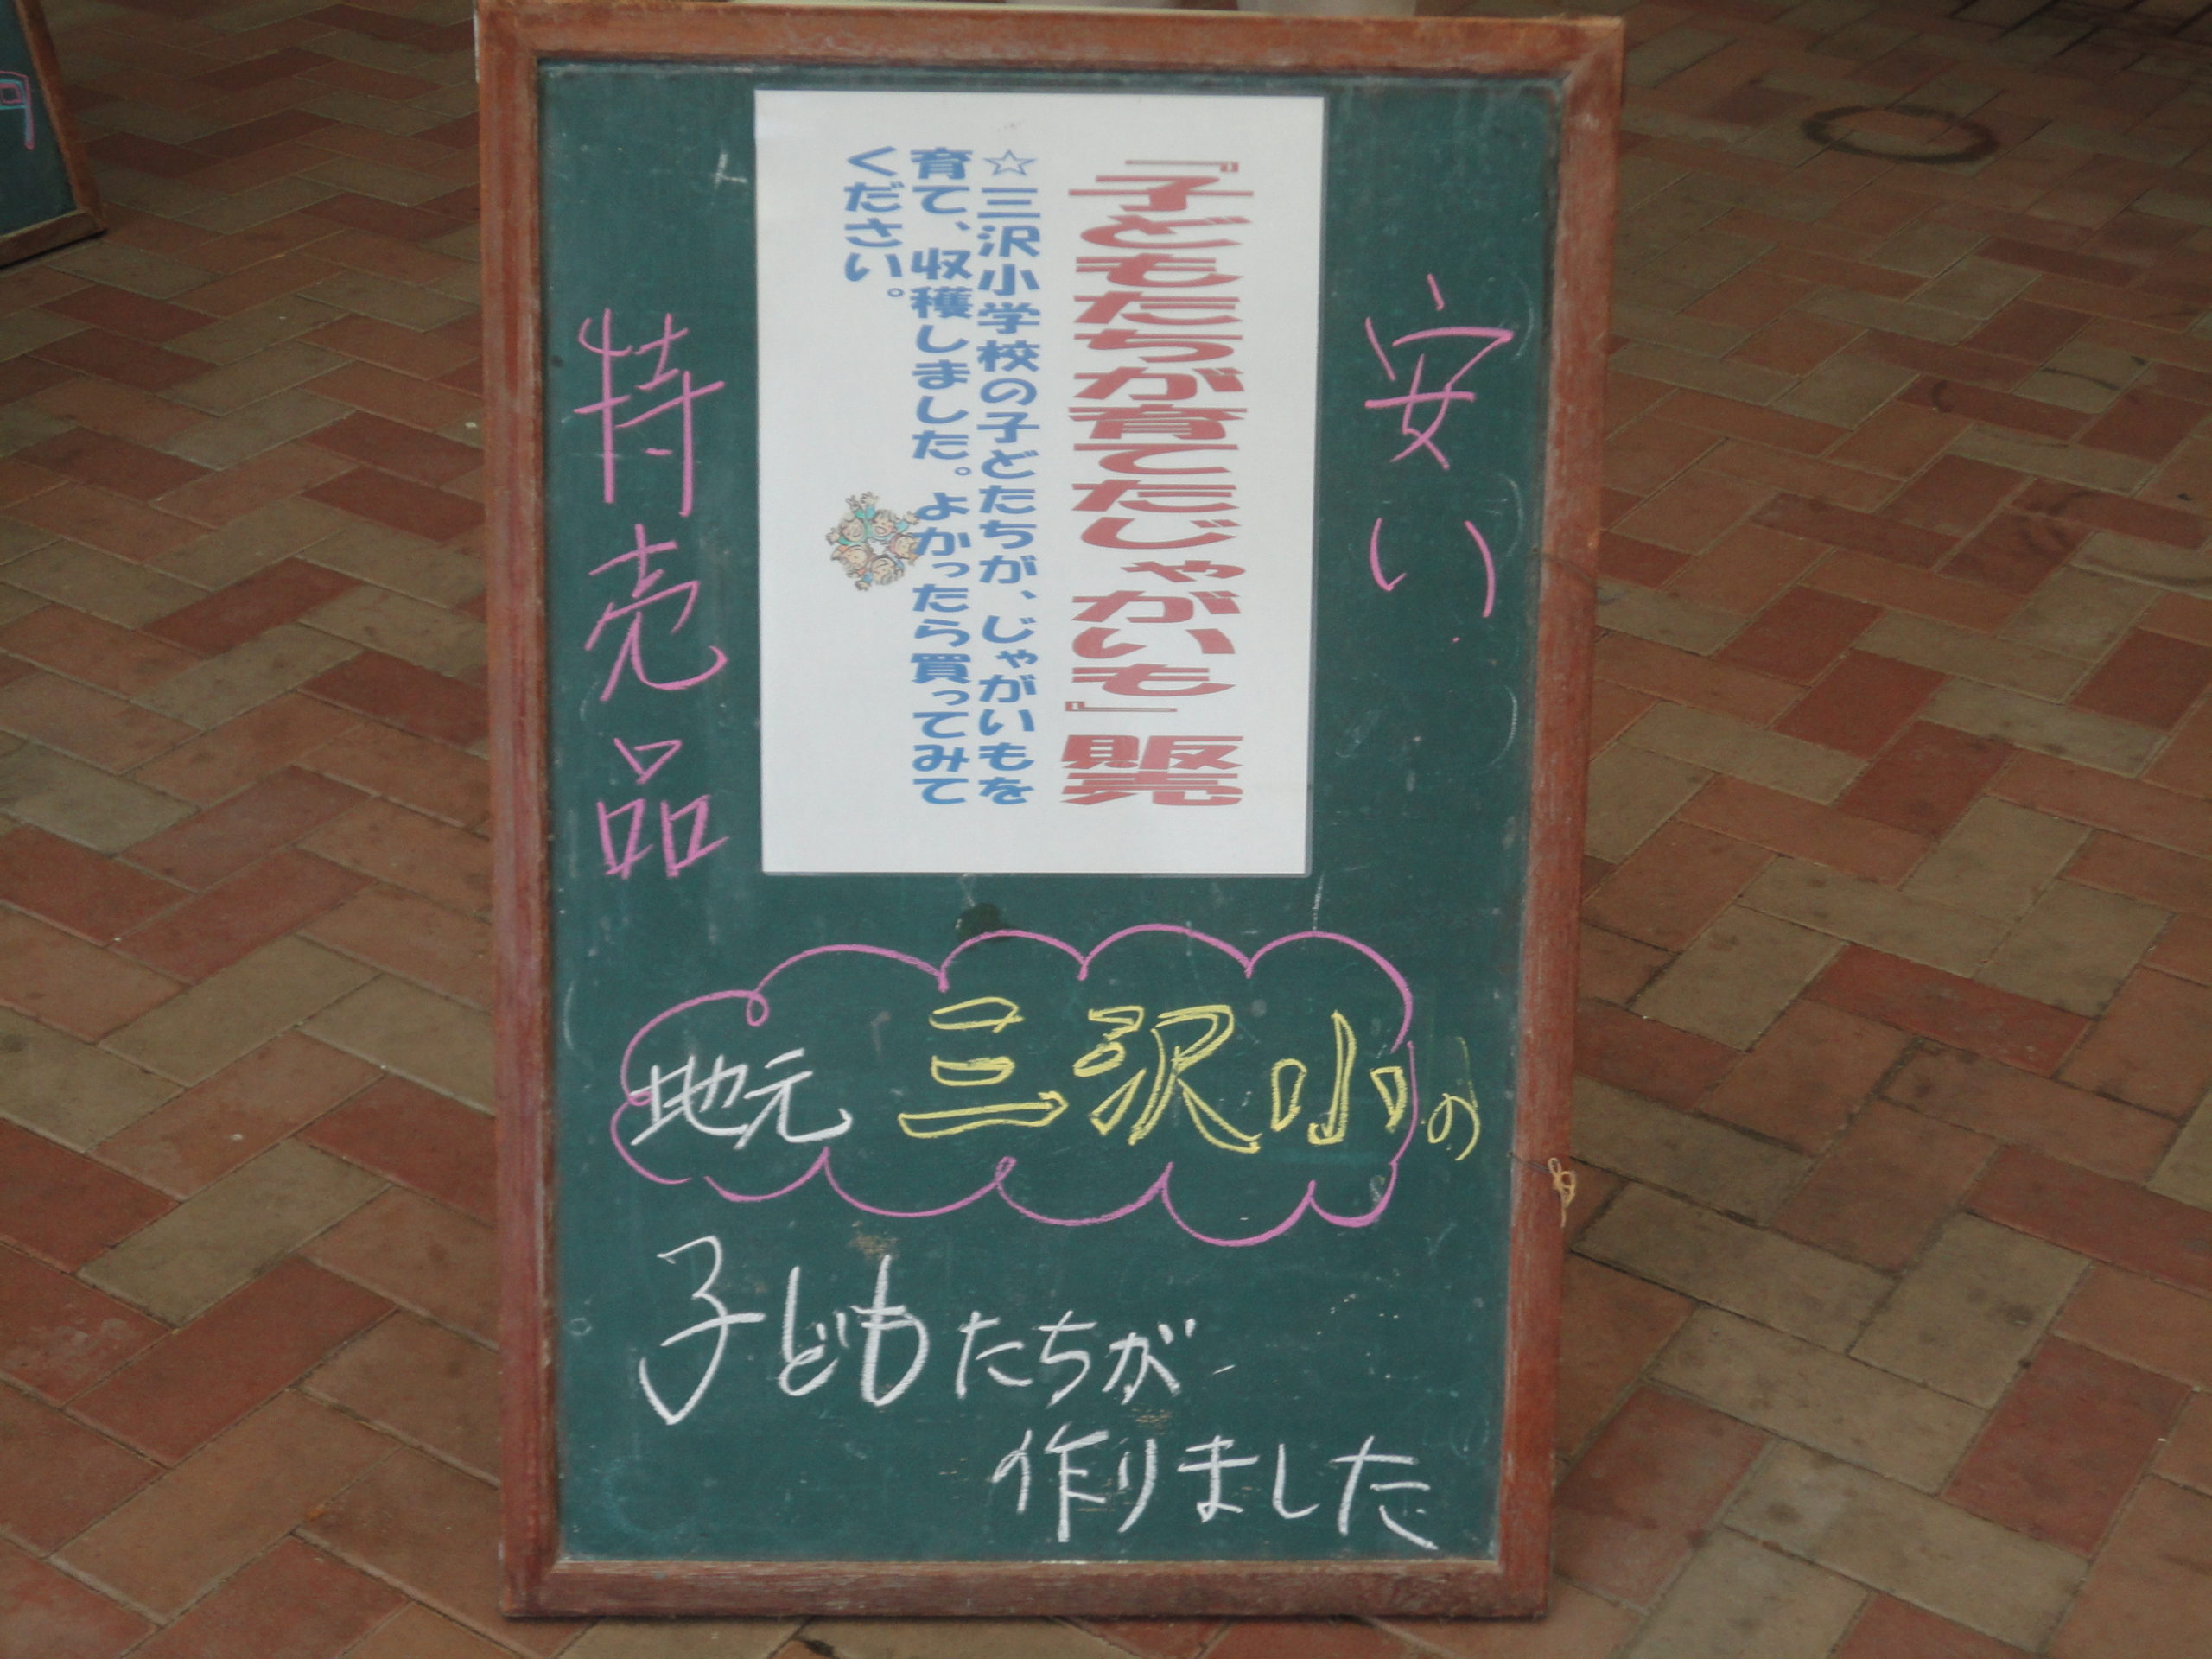 安い
『子どもたちが育てたじゃがいも』販売
☆三沢小学校の子どたちが、じゃがいもを
育て、収穫しました。よかったら買ってみて
ください。
特売品
地元 三沢小の
子どもたちが
作りました